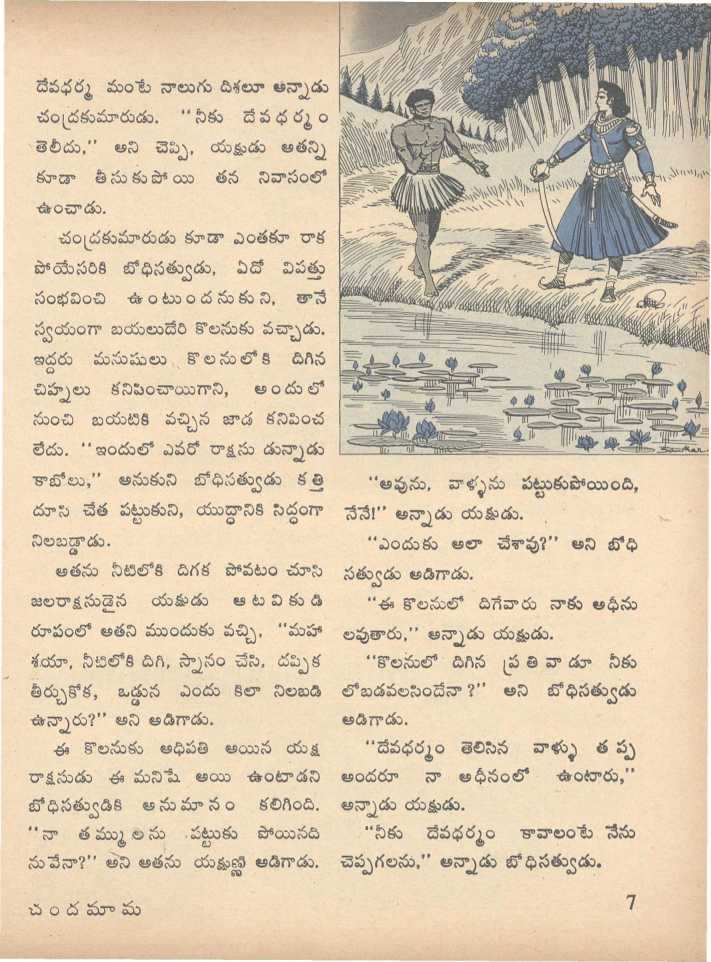 దేవధర్మ మంటే నాలుగు దిశలూ అన్నాడు
చంద్రకుమారుడు. "నీకు దేవధర్మం
తెలీదు," అని చెప్పి, యక్షుడు అతన్ని
కూడా తీసుకుపోయి తన నివాసంలో
ఉంచాడు.
చంద్రకుమారుడు కూడా ఎంతకూ రాక
పోయేసరికి బోధిసత్వుడు, ఏదో విపత్తు
సంభవించి ఉంటుందనుకుని, తానే
స్వయంగా బయలుదేరి కొలనుకు వచ్చాడు.
ఇద్దరు మనుషులు కొలనులోకి దిగిన
చిహ్నలు కనిపించాయిగాని, అందులో
నుంచి బయటికి వచ్చిన జాడ కనిపించ
లేదు. "ఇందులో ఎవరో రాక్షసు డున్నాడు
కాబోలు," అనుకుని బోధిసత్వుడు కత్తి
దూసి చేత పట్టుకుని, యుద్ధానికి సిద్ధంగా
నిలబడ్డాడు.
అతను నీటిలోకి దిగక పోవటం చూసి
జలరాక్షసుడైన యక్షుడు ఆటవికుడి
రూపంలో అతని ముందుకు వచ్చి, "మహా
శయా, నీటిలోకి దిగి, స్నానం చేసి, దప్పిక
తీర్చుకోక, ఒడ్డున ఎందు కిలా నిలబడి
ఉన్నారు?" అని అడిగాడు.
ఈ కొలనుకు అధిపతి అయిన యక్ష
రాక్షసుడు ఈ మనిషే అయి ఉంటాడని
బోధిసత్వుడికి అనుమానం కలిగింది.
"నా తమ్ములను పట్టుకు పోయినది
నువేనా?" అని అతను యక్షుణ్ణి అడిగాడు.
"అవును, వాళ్ళను పట్టుకుపోయింది,
నేనే!" అన్నాడు యక్షుడు.
"ఎందుకు అలా చేశావు?" అని బోధి
సత్వుడు అడిగాడు.
"ఈ కొలనులో దిగేవారు నాకు అధీను
లవుతారు," అన్నాడు యక్షుడు.
"కొలనులో దిగిన ప్రతివాడూ నీకు
లోబడవలసిందేనా?" అని బోధిసత్వుడు
అడిగాడు.
"దేవధర్మం తెలిసిన వాళ్ళు తప్ప
అందరూ నా అధీనంలో ఉంటారు,"
అన్నాడు యక్షుడు.
"నీకు దేవధర్మం కావాలంటే నేను
చెప్పగలను," అన్నాడు బోధిసత్వుడు.
చందమామ
7